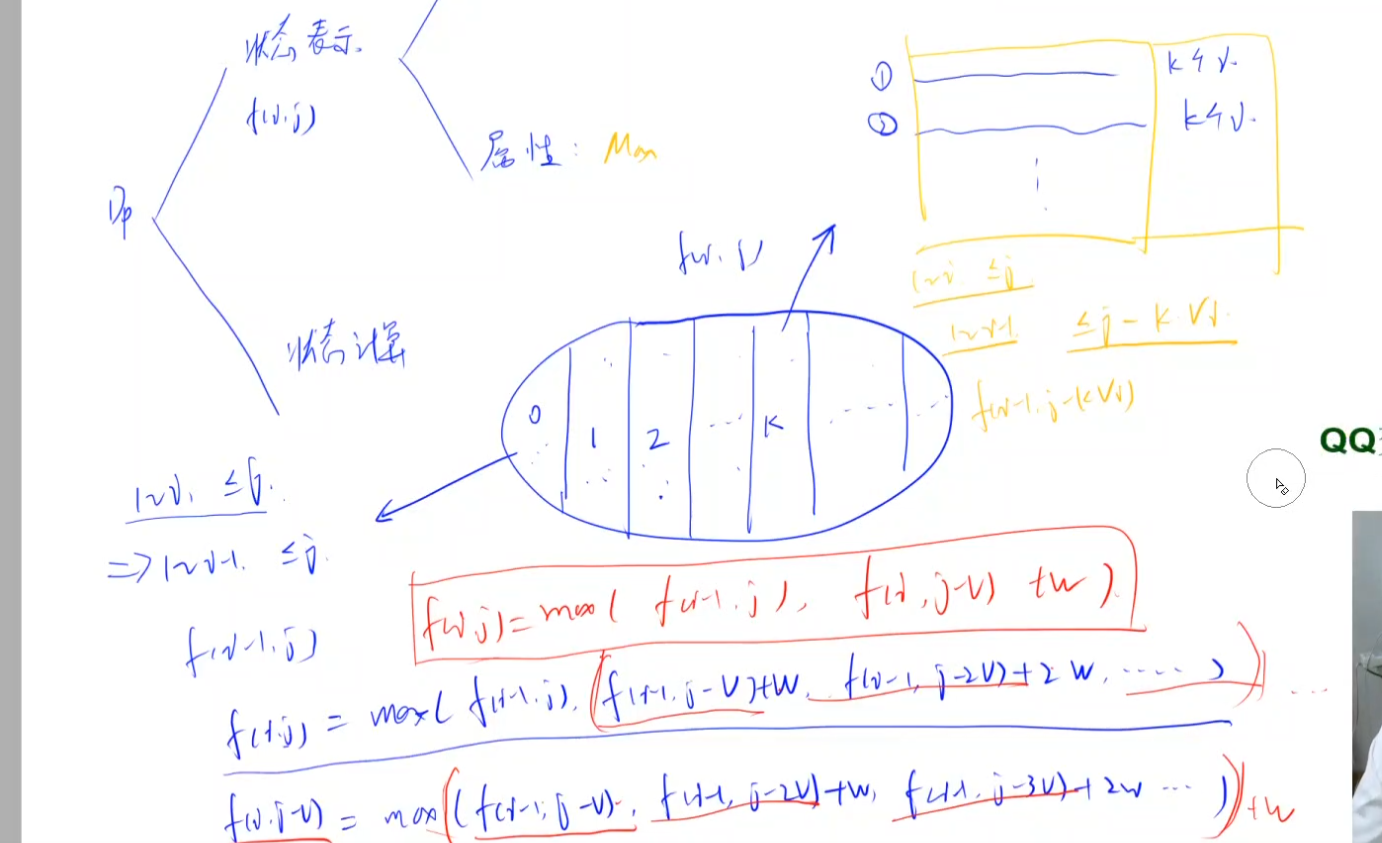 状态表示.
f(i,j)
属性: Max
Dp
状态计算
① k个i.
② k个i.
f(i,j)
1~i ≤j
1~i-1 ≤j - k·Vi
f(i-1, j-kVi)
0 1 2 ... k ......
QQ
1~i, ≤j.
=> 1~i-1. ≤j.
f(i-1,j)
f(i,j)=max( f(i-1,j), f(i,j-V) +w ).
f(i,j) = max( f(i-1,j), f(i-1,j-V)+W, f(i-1, j-2V)+2W, ..... ) ...
f(i,j-V) = max( f(i-1,j-V), f(i-1,j-2V)+W, f(i-1,j-3V)+2W ... ) +W